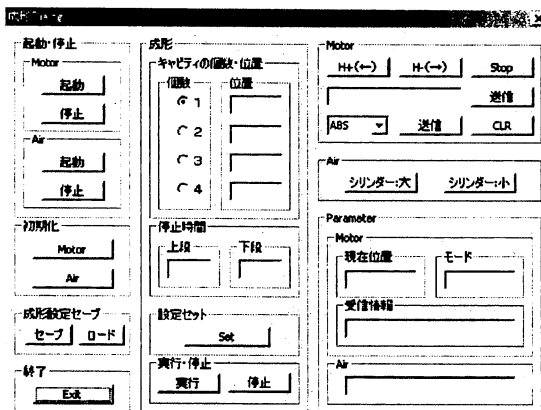 成形
起動・停止
Motor
起動
停止
Air
起動
停止
初期化
Motor
Air
成形設定セーブ
セーブ ロード
終了
Exit
成形
キャビティの個数・位置
個数 位置
1
2
3
4
停止時間
上段 下段
設定セット
Set
実行・停止
実行 停止
Motor
H+(←) H-(→) Stop
送信
ABS 送信 CLR
Air
シリンダー:大 シリンダー:小
Parameter
Motor
現在位置 モード
受信情報
Air